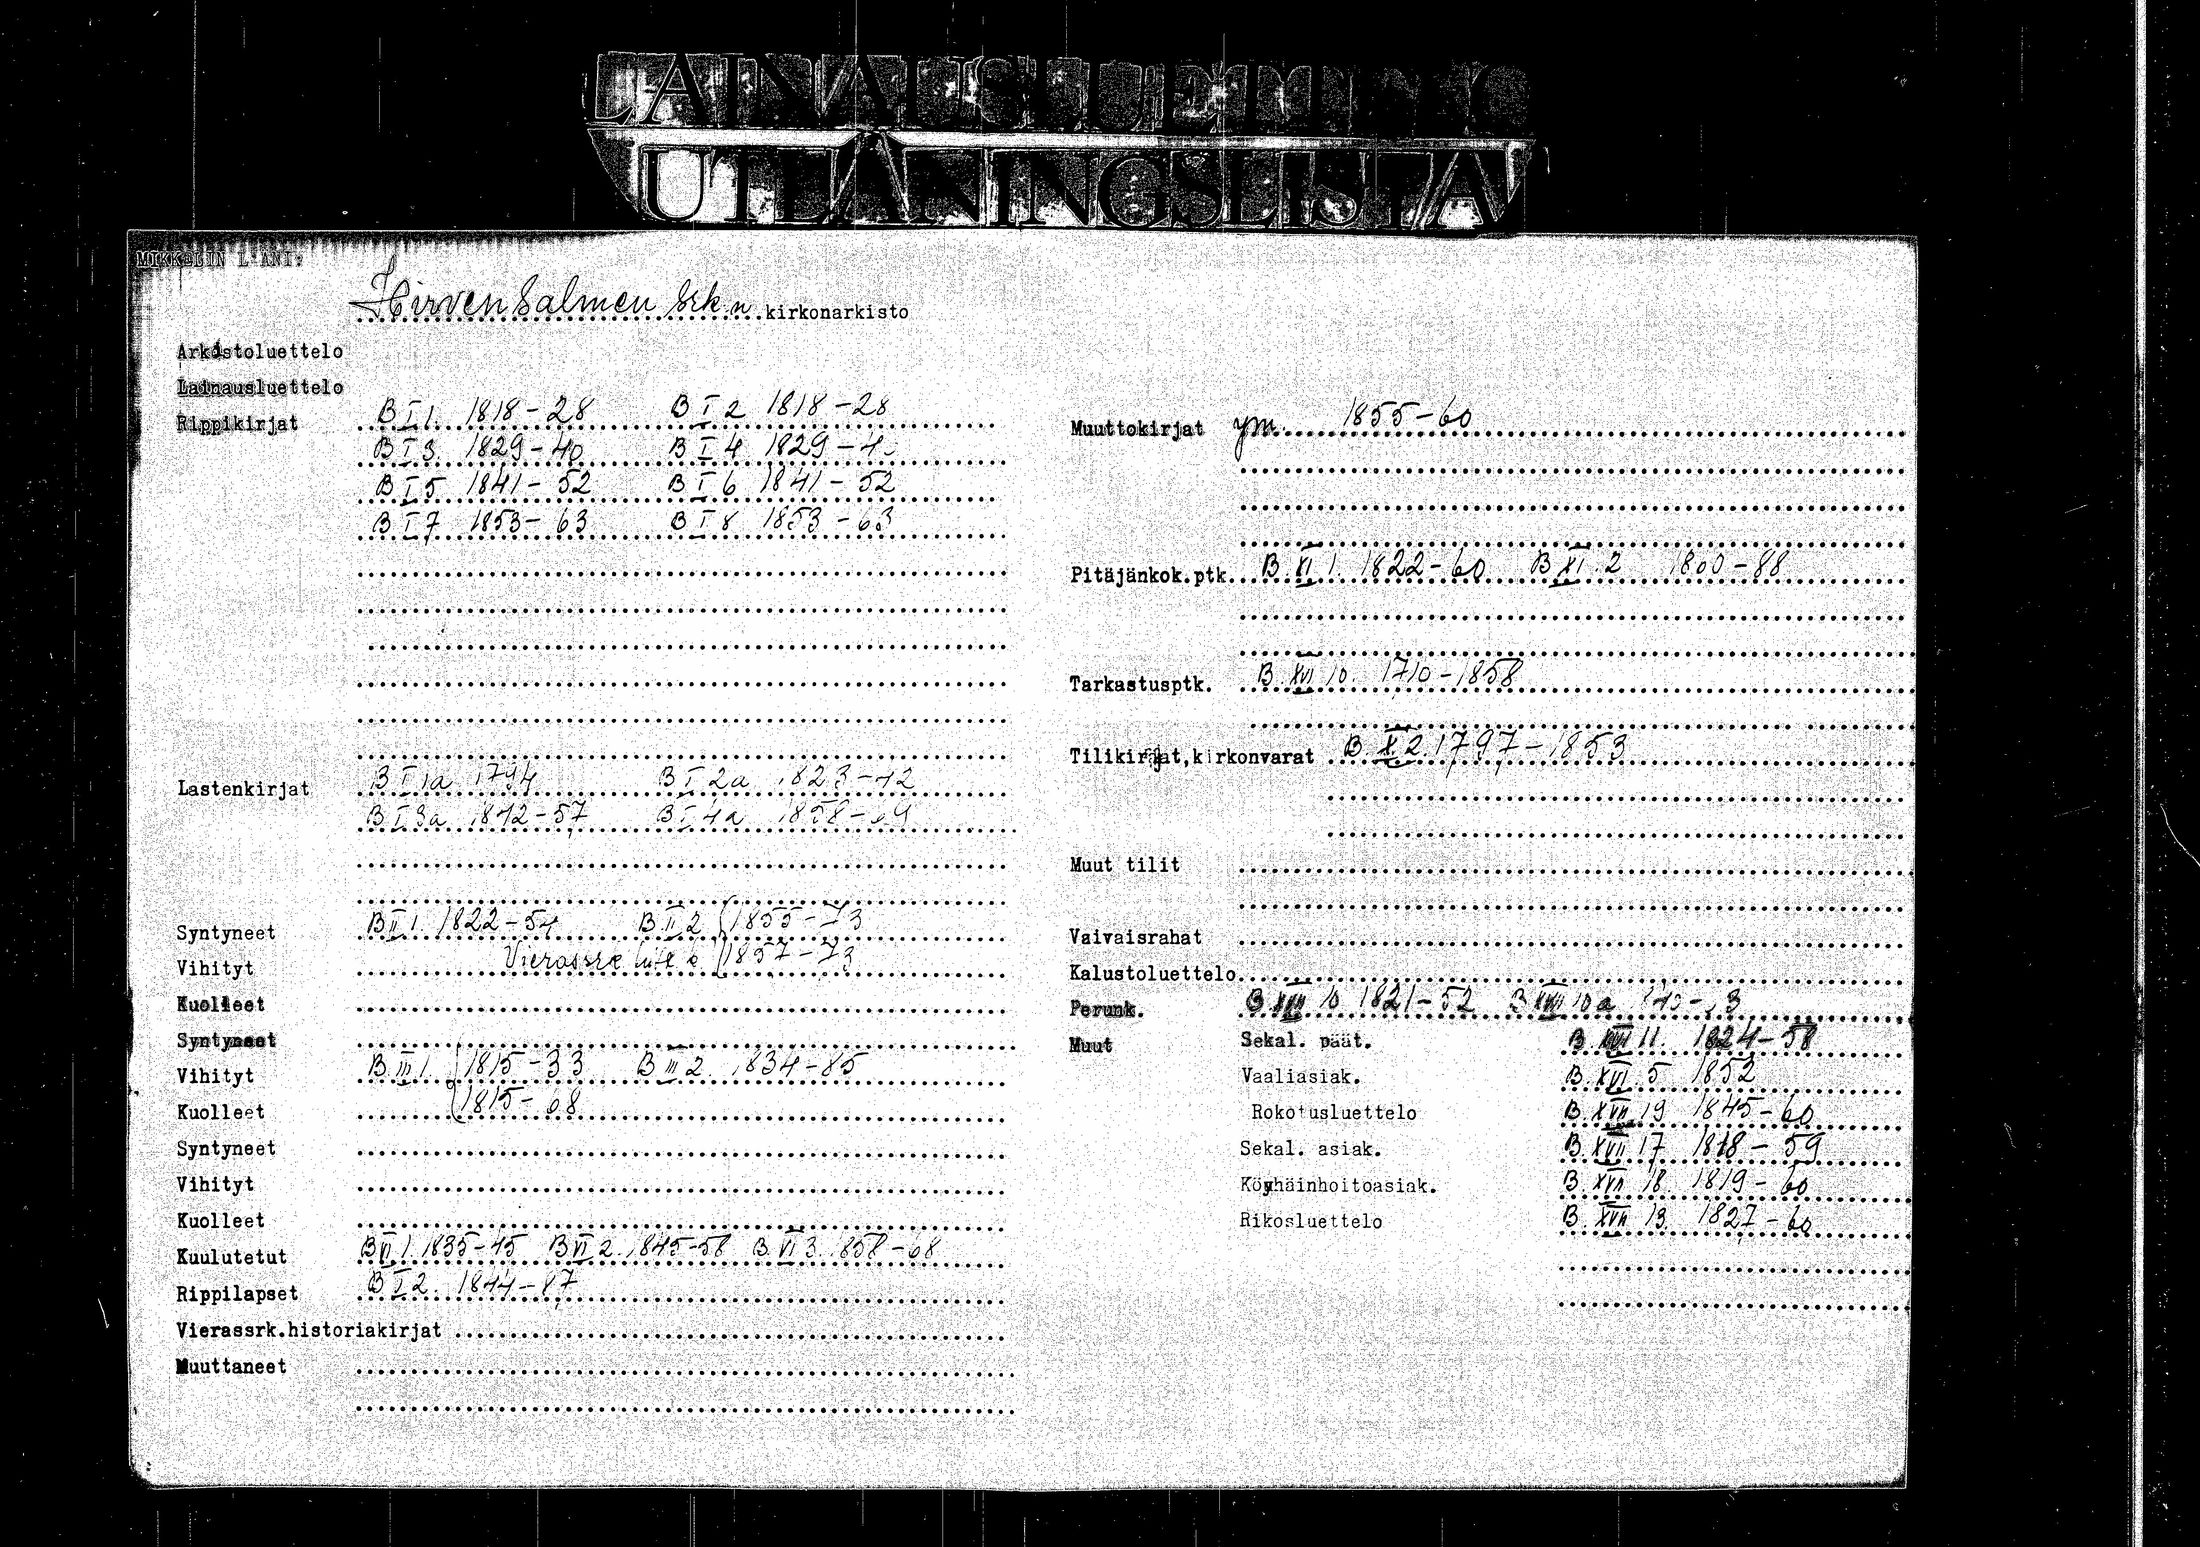 LAINAUSLUETTELO
UTLÅNINGSLISTA
MIKKELIN LÄÄNI:
Hirvensalmen srk:n kirkonarkisto
Arkistoluettelo
Lainausluettelo
Rippikirjat B I 1. 1818-28 B I 2 1818-28
B I 3. 1829-40 B I 4 1829-40
B I 5 1841-52 B I 6 1841-52
B I 7 1853-63 B I 8 1853-63
Lastenkirjat B I 1a 1794 B I 2a 1823-42
B I 3a 1842-57 B I 4a 1858-
Syntyneet B II 1. 1822-54 B II 2 1855-73
Vihityt Vierassrk 1857-73
Kuolleet
Syntyneet
Vihityt B III 1. 1815-33 B III 2. 1834-85
Kuolleet 1815-68
Syntyneet
Vihityt
Kuolleet
Kuulutetut B VI 1. 1835-45 B VI 2. 1845-58 B VI 3. 1858-68
Rippilapset B I 2. 1844-87
Vierassrk.historiakirjat
Muuttaneet
Muuttokirjat ym. 1855-60
Pitäjänkok.ptk. B. XI 1. 1822-60 B XI. 2 1860-88
Tarkastusptk. B. XVI 10. 1710-1858
Tilikirjat,kirkonvarat B. X. 2. 1797-1853
Muut tilit
Vaivaisrahat
Kalustoluettelo
Perunk. B XVII 10. 1821-52 B XVII 10a
Muut Sekal. päät. B. XVI 11. 1824-58
Vaaliasiak. B. XVI 5 1852
Rokotusluettelo B. XVII 19 1845-60
Sekal. asiak. B. XVII 17 1818-59
Köyhäinhoitoasiak. B. XVII 18. 1819-60
Rikosluettelo B. XVII 13. 1827-60